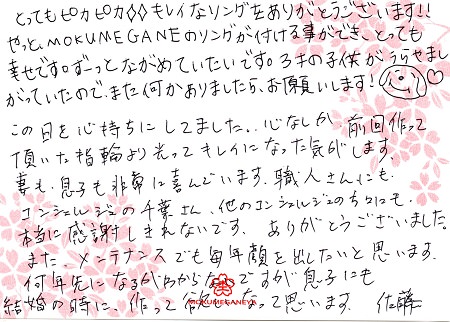 とってもピカピカ◇◇キレイなリングをありがとうございます!!
やっと、MOKUMEGANEのリングが付ける事ができ、とっても
幸せです。ずーっとながめていたいです。3才の子供がうらやまし
がっていたので、また何かありましたら、お願いします!
この日を心待ちにしてました。心なしか、前回作って
頂いた指輪より光ってキレイになった気がします。
妻も、息子も非常に喜んでいます。職人さんにも、
コンシェルジュの千葉さん、他のコンシェルジュの方々にも、
本当に感謝しきれないです。ありがとうございました。
また、メンテナンスでも毎年顔を出したいと思います。
何年先になるかわからないですが息子にも
結婚の時に、作って欲しいなって思います。 佐藤
MOKUMEGANEYA